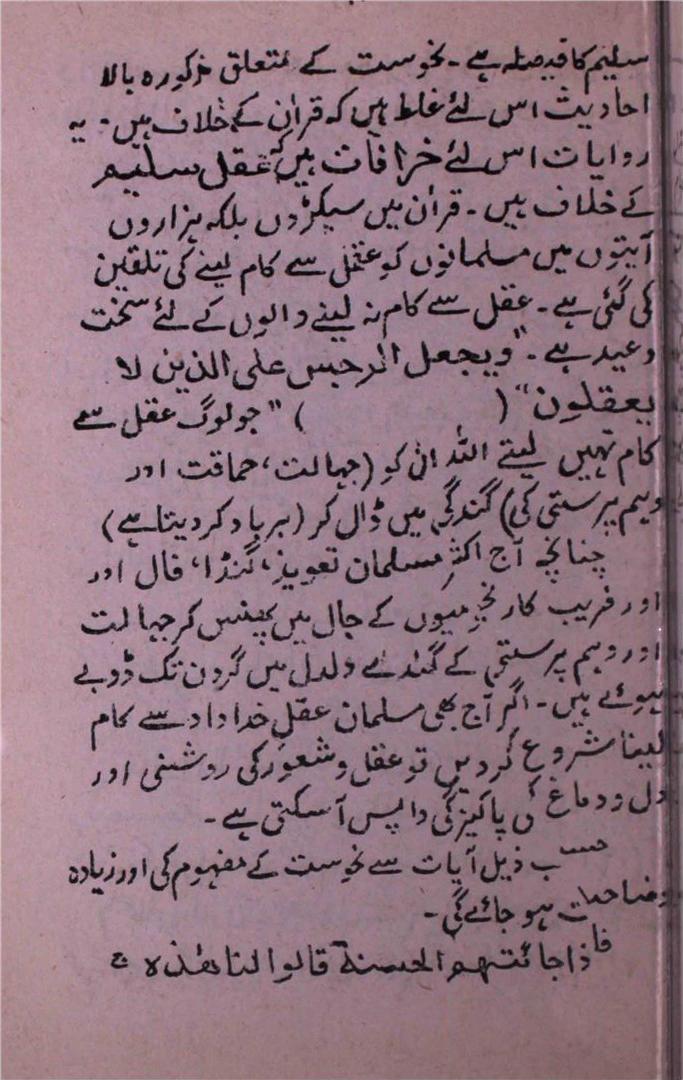 سلیم کا فیصلہ ہے۔ نحوست کے متعلق مذکورہ بالا
احادیث اس لئے غلط ہیں کہ قرآن کے خلاف ہیں۔ یہ
روایات اس لئے خرافات ہیں کہ عقل سلیم
کے خلاف ہیں۔ قرآن میں سیکڑوں بلکہ ہزاروں
آیتوں میں مسلمانوں کو عقل سے کام لینے کی تلقین
کی گئی ہے۔ عقل سے کام نہ لینے والوں کے لئے سخت
وعید ہے۔ "ویجعل الرجس علی الذین لا
یعقلون" ( ) "جو لوگ عقل سے
کام نہیں لیتے اللہ ان کو (جہالت، حماقت اور
وہم پرستی کی) گندگی میں ڈال کر (برباد کر دیتا ہے)
چنانچہ آج اکثر مسلمان تعویذ، گنڈا، فال اور
اور فریب کار نجومیوں کے جال میں پھنس کر جہالت
اور وہم پرستی کے گندے دلدل میں گردن تک ڈوبے
ہوئے ہیں۔ اگر آج بھی مسلمان عقل خداداد سے کام
لینا شروع کر دیں تو عقل و شعور کی روشنی اور
دل و دماغ کی پاکیزگی واپس آسکتی ہے۔
حسب ذیل آیات سے نحوست کے مفہوم کی اور زیادہ
وضاحت ہو جائے گی۔
فاذا جائتہم الحسنة قالوا لنا ھذہ ج